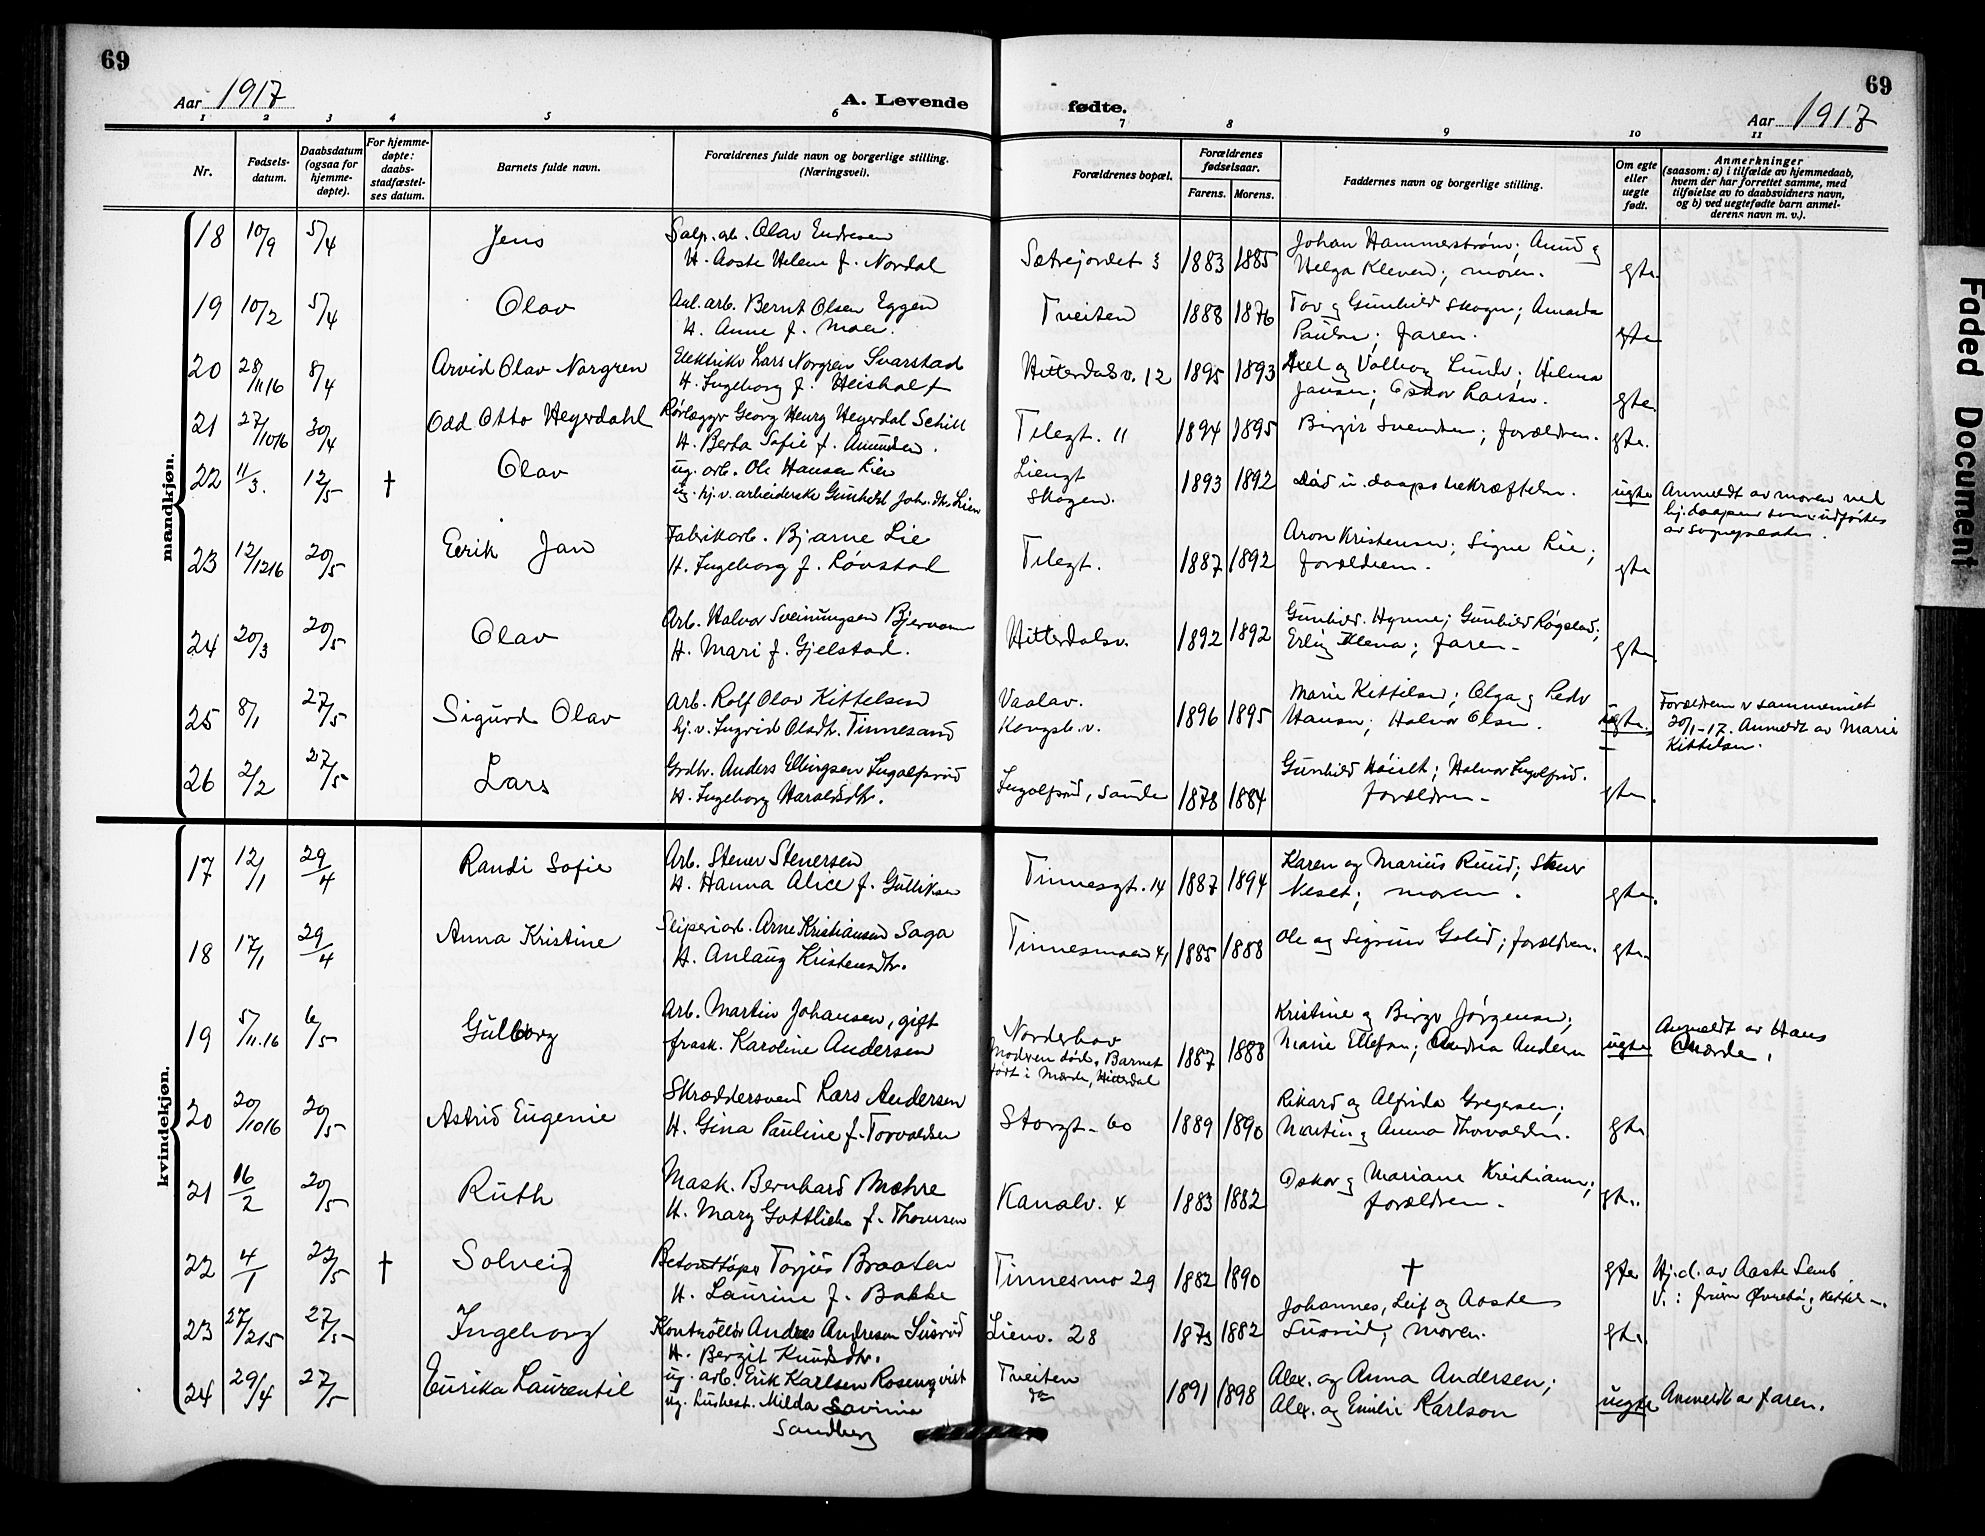 69
69
Aar 1917
A. Levende
fødte.
Aar 1917
1 2 3 4 5 6 7 8 9 10 11
Nr.
Fødsels-
datum.
Daabsdatum
(ogsaa for
hjemme-
døpte).
For hjemme-
døpte:
daabs-
stadfæstel-
ses datum.
Barnets fulde navn.
Forældrenes fulde navn og borgerlige stilling.
(Næringsvei).
Forældrenes bopæl.
Forældrenes
fødselsaar.
Farens. Morens.
Faddernes navn og borgerlige stilling.
Om egte
eller
uegte
født.
Anmerkninger
(saasom: a) i tilfælde av hjemmedaab,
hvem der har forrettet samme, med
tilføielse av to daabsvidners navn,
og b) ved uegtefødte barn anmel-
derens navn m. v.).
mandkjøn.
18 10/9 5/4 Jens
Salp. arb. Olav Endresen
H. Aaste Helene f. Nordal
Sætrejordet 3 1883 1885
Johan Hammerström; Amund og
Helga Kleven; moren. gte.
19 10/2 5/4 Olav
Anl. arb. Bernt Olsen Eggen
H. Anne f. Moen.
Tveiten 1888 1876
Tov og Gunhild Skogen; Amanda
Paulsen; faren. gte
20 28/11 16 8/4 Arvid Olav Norgren
Elektriker Lars Norgren Svarstad
H. Ingeborg f. Heisholt
Hitterdalsv. 12 1895 1893
Axel og Valborg Lunde; Hilma
Jansen; Oskar Larsen. gte.
21 27/10 16 30/4 Odd Otto Heyerdahl
Rørlægger Georg Henry Heyerdal Schill
H. Berta Sofie f. Amundsen.
Telegt. 11 1894 1895
Birgit Svendsen; forældren. gte.
22 11/3. 12/5 † Olav
ug. arb. Ole Hansen Lien
ug. hj. v. arbeiderske Gunhild Joh. dtr. Lien
Liengt
Skogen. 1893 1892
Død u. daapsbekræftelse. ugte
Anmeldt av moren ved
hj. daapen som utførtes
av sognepresten.
23 12/12 16 20/5 Eerik Jan
Fabrikarb. Bjarne Lie
H. Ingeborg f. Løvstad
Telegt. 1887 1892
Aron Kristensen; Signe Lie;
forældrene. gte
24 20/3 20/5 Olav
Arb. Halvor Sveinungsen Bjervam
H. Mari f. Gjelstad.
Hitterdalsv. 1892 1892
Gunhild Hynne; Gunhild Røgstad;
Erling Klena; faren. gte.
25 8/1 27/5 Sigurd Olav
Arb. Rolf Olav Kittelsen
hj. v. Ingrid Olsdtr. Tinnesand
Vaalav.
Kongsb. v. 1896 1895
Marie Kittelsen; Olga og Peder
Hansen; Halvor Olsen. ugte.
Forældrene v sammenviet
20/1-17. Anmeldt av Marie
Kittelsen.
26 2/2 27/5 Lars
Grdbr. Anders Ellingsen Ingolfsrud
H. Ingeborg Haraldsdtr.
Ingolfsrud, Sande 1878 1884
Gunhild Høiset; Halvor Ingolfsrud.
forældren. gte.
kvindekjøn.
17 12/1 29/4 Randi Sofie
Arb. Stener Stenersen
H. Hanna Alice f. Gulliksen
Tinnesgt. 14 1887 1894
Karen og Marius Ruud; Stener
Neset; moren. gte.
18 17/1 29/4 Anna Kristine
Sliperiarb. Arne Kristiansen Saga
H. Anlaug Kristensdtr.
Tinnesmoen 41 1885 1888
Ole og Sigrun Golid; forældren. gte.
19 5/11.16 6/5 Gulborg
Arb. Martin Johansen, gift
frask. Karoline Andersen
Norderhov
Modren død. Barnet
født i Mærde, Hitterdal 1887 1888
Kristine og Birger Jørgensen;
Marie Ellefsen; Andrea Andersen ugte
Anmeldt av Hans
Mærde.
20 20/10 16 20/5 Astrid Eugenie
Skræddersvend Lars Andersen
H. Gina Pauline f. Torvaldsen
Storgt. 60 1889 1890
Rikard og Alfrida Gregersen;
Martin og Anna Thorvaldsen. gte
21 16/2 20/5 Ruth
Mask. Bernhard Mæhre
H. Mary Gottliebe f. Thomsen
Kanalv. 4 1883 1882
Oskar og Mariane Kristiansen;
forældren. gte.
22 4/1 22/5 † Solveig
Betonstøper Torjus Braaten
H. Laurine f. Bakke
Tinnesmo 29 1882 1890
† gte
Hj.d. av Aaste Semb
V.:
23 27/2 15 27/5 Ingeborg
Kontrollør Andres Andresen Susrud
H. Bergit Knudsdtr.
Lienv. 28 1873 1882
Johannes, Leif og Aaste
Susrud; moren. gte.
24 29/4 27/5 Eurika Laurentil
ug. arb. Erik Karlsen Rosenqvist
ug. husbest. Milda Savinia
Sandberg
Tveiten
do 1891 1898
Alex. og Anna Andersen;
Alex. og Emilie Karlson ugte
Anmeldt av faren.
Faded Document